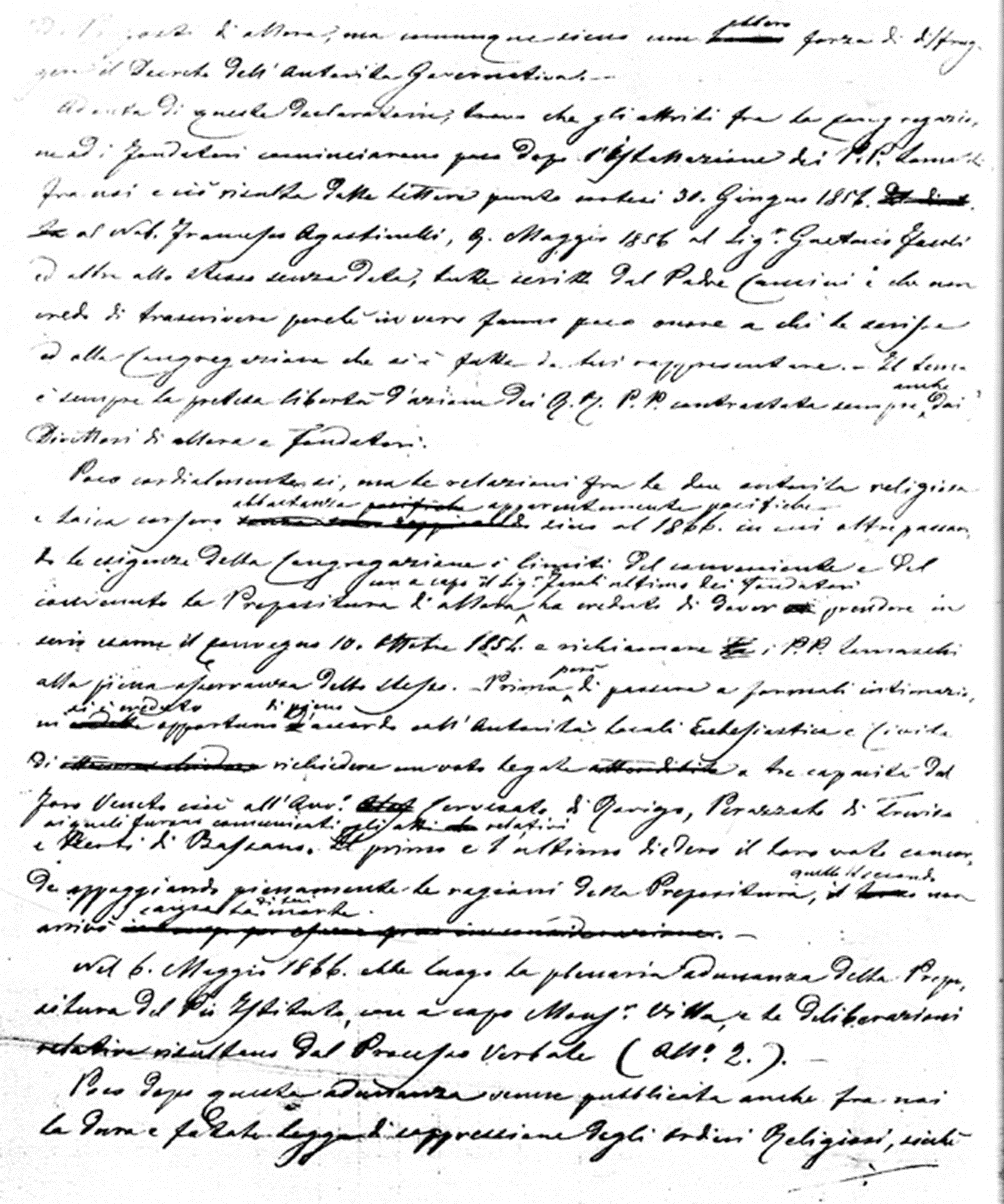 di allora, ma comunque sieno non ebbero forza di distrug-
gere il Decreto dell'Autorità Governativa. —
di questa declaratoria, trovo che gli attriti fra la Congregazio-
ne ed i Fondatori cominciarono poco dopo l'Istallazione dei P.P. Somaschi
fra noi e ciò risulta dalle lettere 30. Giugno 1856.
al Nob. Francesco Agostinelli, 9. Maggio 1856 al Sigr. Gaetano Fasoli
ed altra allo stesso senza data, tutte scritte dal Padre e che non
credo di trascrivere perchè in vero fanno poco onore a chi le scrisse
ed alla Congregazione che si è fatta da lui rappresentare. — Il tema
è sempre la pretesa libertà d'azione dei R.R. P.P. contrastata sempre anche dai
Direttori di allora e Fondatori.
Poco cordialmente sì, ma le relazioni fra le due autorità religiosa
abbastanza pacifiche apparentemente pacifiche
e laica corsero sino al 1866. in cui oltrepassan-
do le esigenze della Congregazione i limiti del conveniente e del
con a capo il Sigr. Fasoli ultimo dei Fondatori
convenuto la Prepositura d'allora ha creduto di dover prendere in
serio esame il convegno 10. Ottobre 1854. e richiamare i P.P. Somaschi
alla piena osservanza dello stesso. — Prima però di passare a formali intimazio-
si è creduto di pieno
ni opportuno d'accordo coll'Autorità locali Ecclesiastica e Civile
di richiedere un voto legale a tre capacità del
Foro Veneto cioè all'Avvo. Cervesato di Rovigo, Perazzolo di Treviso
ai quali furono comunicati gli atti relativi
e Berti di Bassano. Il primo e l'ultimo diedero il loro voto concor-
de appoggiando pienamente le ragioni della Prepositura, quello del secondo non
causa la di lui morte.
arrivò —
Nel 6. Maggio 1866. ebbe luogo la plenaria adunanza della Prepo-
situra del Pio Istituto, con a capo Monsr. Villa, e le deliberazioni
relative risultano dal Processo Verbale (Allo. 2.). —
Poco dopo questa adunanza venne pubblicata anche fra noi
la dura e fatale legge di soppressione degli Ordini Religiosi, sicchè